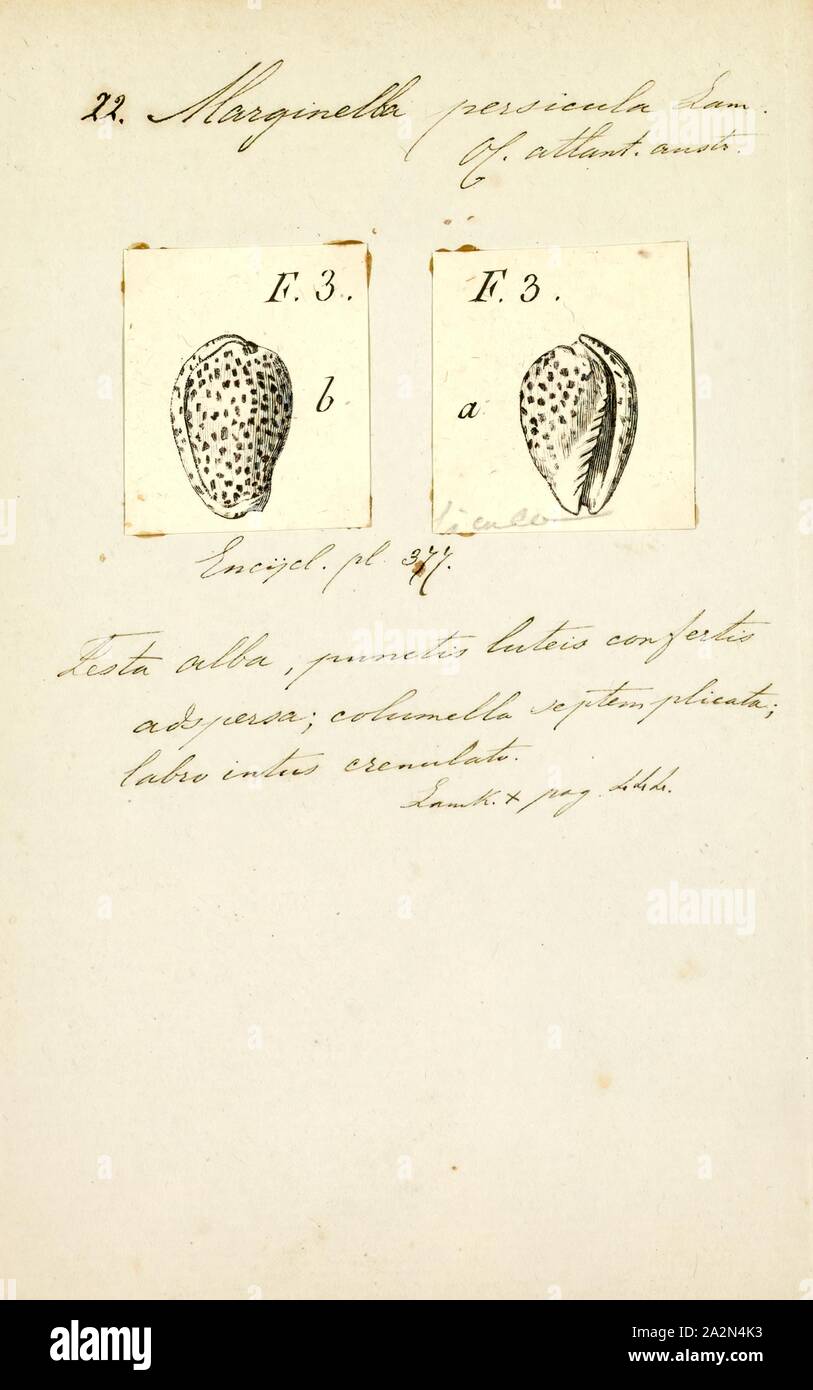 22. Marginella persicula Lam.
Oc. atlant. austr.
F. 3.
b
F. 3.
a
Encijcl. pl. 377.
Testa alba, punctis luteis confertis
adspersa; columella septemplicata;
labro intus crenulato.
Lamk. + pag. 444.
alamy
Image ID: 2A2N4K3
www.alamy.com